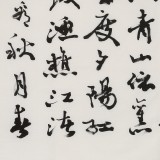 青山依舊
度夕陽紅
漁樵江渚
看秋月春